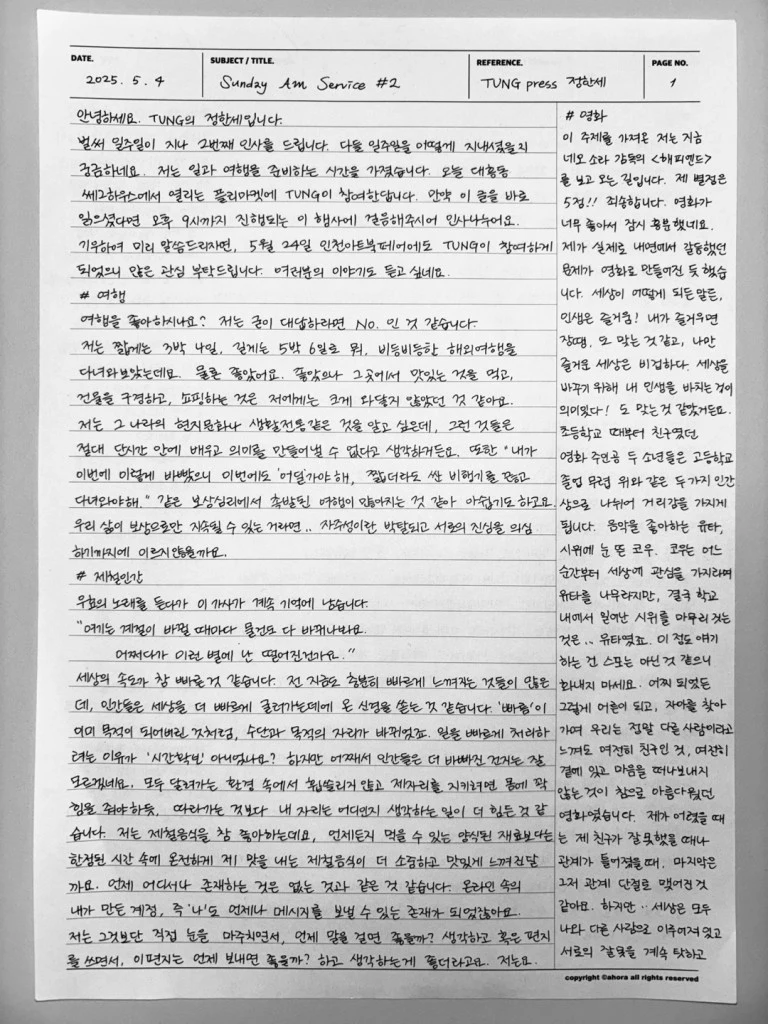 DATE.
2025. 5. 4
SUBJECT / TITLE.
Sunday AM Service #2
REFERENCE.
TUNG press 정한세
PAGE NO.
1
안녕하세요. TUNG의 정한세입니다.
벌써 일주일이 지나 2번째 인사를 드립니다. 다들 일주일을 어떻게 지내셨을지
궁금하네요. 저는 일과 여행을 준비하는 시간을 가졌습니다. 오늘 대흥동
쎄그하우스에서 열리는 플리마켓에 TUNG이 참여한답니다. 만약 이 글을 바로
읽으셨다면 오후 9시까지 진행되는 이 행사에 걸음해주시어 인사나누어요.
기우하여 미리 말씀드리자면, 5월 24일 인천아트북페어에도 TUNG이 참여하게
되었으니 많은 관심 부탁드립니다. 여러분의 이야기도 듣고 싶네요.
# 여행
여행을 좋아하시나요? 저는 굳이 대답하라면 No. 인 것 같습니다.
저는 짧게는 3박 4일, 길게는 5박 6일로 뭐, 비등비등한 해외여행을
다녀와보았는데요. 물론 좋았어요. 좋았으나 그곳에서 맛있는 것을 먹고,
건물을 구경하고, 쇼핑하는 것은 저에게는 크게 와닿지 않았던 것 같아요.
저는 그 나라의 현지문화나 생활전통같은 것을 알고 싶은데, 그런 것들은
절대 단시간 안에 배우고 의미를 만들어낼 수 없다고 생각하거든요. 또한 "내가
이번에 이렇게 바빴으니 이번에도 '어딜'가야해, 짧더라도 싼 비행기를 끊고
다녀와야해." 같은 보상심리에서 촉발된 여행이 많아지는 것 같아 아쉽기도 하고요.
우리 삶이 보상으로만 지속될 수 있는 거라면.. 자주성이란 박탈되고 서로의 진심을 의심
하기까지에 이르지않을까요.
# 제철인간
우효의 노래를 듣다가 이 가사가 계속 기억에 남습니다.
"여기는 계절이 바뀔 때마다 물건도 다 바뀌나봐요.
어쩌다가 이런 별에 난 떨어진건가요."
세상의 속도가 참 빠른 것 같습니다. 전 지금도 충분히 빠르게 느껴지는 것들이 많은
데, 인간들은 세상을 더 빠르게 굴러가는데에 온 신경을 쏟는 것 같습니다. '빠름'이
이미 목적이 되어버린 것처럼, 수단과 목적의 자리가 바뀌었죠. 일을 빠르게 처리하
려는 이유가 '시간확보' 아니었나요? 하지만 어째서 인간들은 더 바빠진 건지는 잘
모르겠네요. 모두 달려가는 환경 속에서 휩쓸리지 않고 제자리를 지키려면 몸에 꽉
힘을 줘야하듯, 따라가는 것보다 내 자리는 어디인지 생각하는 일이 더 힘든 것 같
습니다. 저는 제철음식을 참 좋아하는데요, 언제든지 먹을 수 있는 양식된 재료보다는
한정된 시간 속에 온전하게 제 맛을 내는 제철음식이 더 소중하고 맛있게 느껴진달
까요. 언제 어디서나 존재하는 것은 없는 것과 같은 것 같습니다. 온라인 속의
내가 만든 계정, 즉 '나'도 언제나 메시지를 보낼 수 있는 존재가 되었잖아요.
저는 그것보단 직접 눈을 마주치면서, 언제 말을 걸면 좋을까? 생각하고 혹은 편지
를 쓰면서, 이편지는 언제 보내면 좋을까? 하고 생각하는게 좋더라고요. 저는요.
# 영화
이 주제를 가져온 저는 지금
네오 소라 감독의 <해피엔드>
를 보고 오는 길입니다. 제 별점은
5점!! 죄송합니다. 영화가
너무 좋아서 잠시 흥분했네요.
제가 실제로 내면에서 갈등했던
문제가 영화로 만들어진 듯 했습
니다. 세상이 어떻게 되든말든,
인생은 즐거움! 내가 즐거우면
장땡. 도 맞는 것 같고, 나만
즐거운 세상은 비겁하다. 세상을
바꾸기 위해 내 인생을 바치는 것이
의미있다! 도 맞는 것 같았거든요.
초등학교 때부터 친구였던
영화 주인공 두 소년들은 고등학교
졸업 무렵 위와 같은 두가지 인간
상으로 나뉘어 거리감을 가지게
됩니다. 음악을 좋아하는 유타,
시위에 눈 뜬 코우. 코우는 어느
순간부터 세상에 관심을 가지라며
유타를 나무라지만, 결국 학교
내에서 일어난 시위를 마무리 짓는
것은.. 유타였죠. 이 정도 얘기
하는 건 스포는 아닌 것 같으니
화내지 마세요. 어찌 되었든
그렇게 어른이 되고, 자아를 찾아
가며 우리는 정말 다른 사람이라고
느껴도 여전히 친구인 것, 여전히
곁에 있고 마음을 떠나보내지
않는 것이 참으로 아름다웠던
영화였습니다. 제가 어렸을 때
는 제 친구가 잘못했을 때나
관계가 틀어졌을 때, 마지막은
그저 관계 단절로 맺어진 것
같아요. 하지만.. 세상은 모두
나와 다른 사람으로 이루어져 있고
서로의 잘못을 계속 탓하고
copyright ©ahora all rights reserved